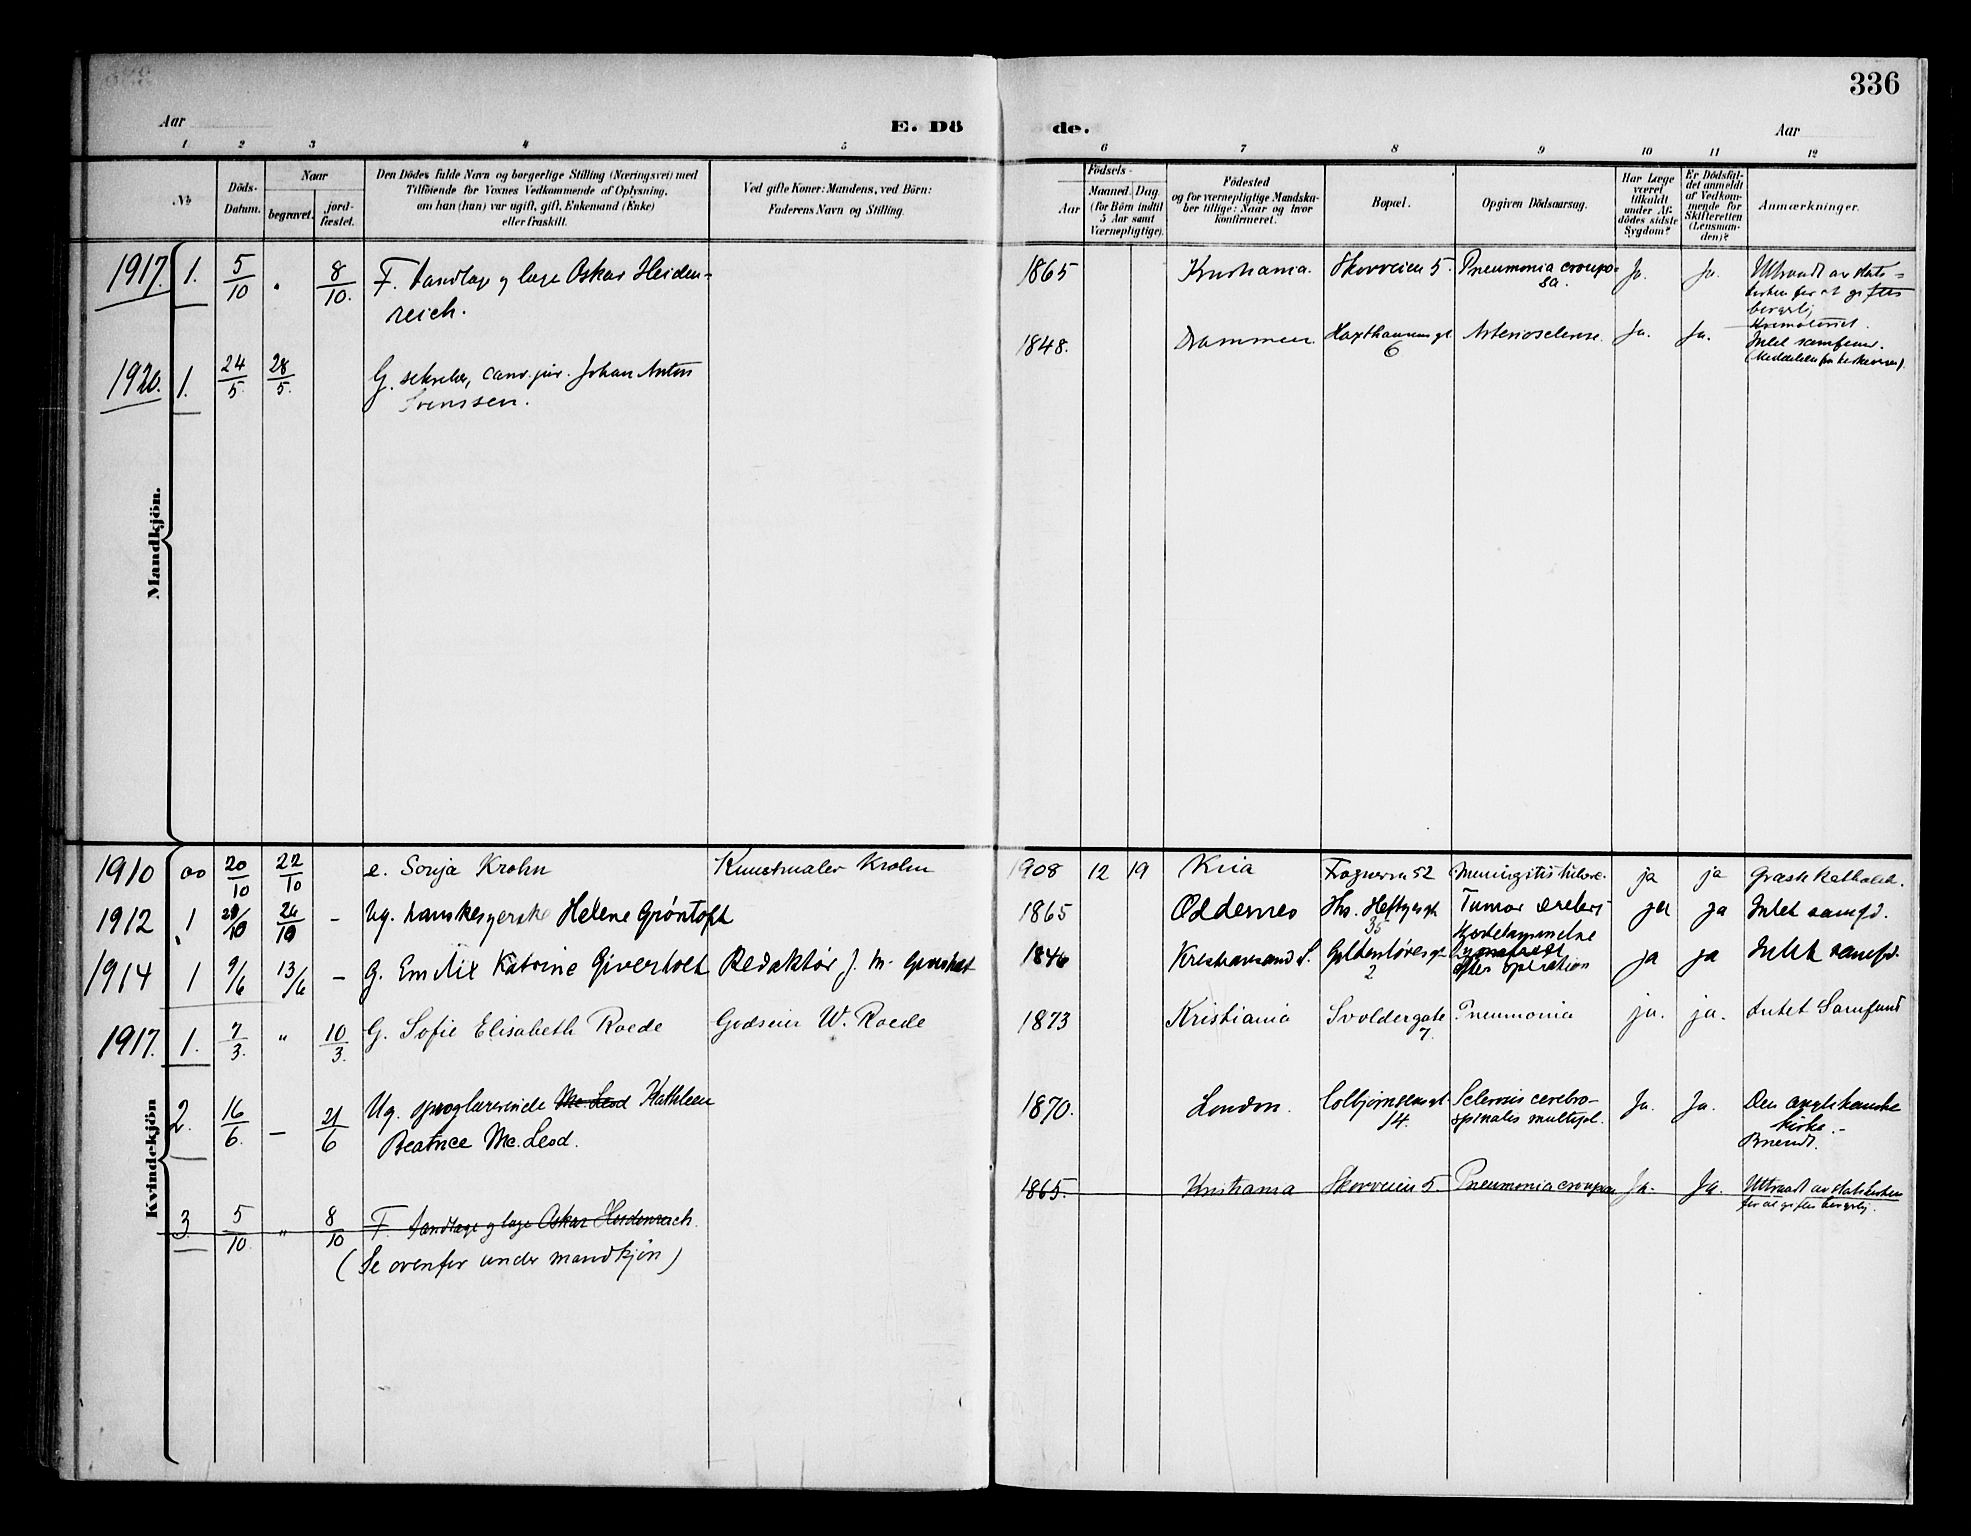 336
Aar
E. Dö
de.
Aar
1 2 3 4 5 6 7 8 9 10 11 12
No
Döds-
Datum.
Naar
begravet.
jord-
fæstet.
Den Dödes fulde Navn og borgerlige Stilling (Næringsvei) med
Tilföiende for Voxnes Vedkommende af Oplysning,
om han (hun) var ugift, gift, Enkemand (Enke)
eller fraskilt.
Ved gifte Koner: Mandens, ved Börn:
Faderens Navn og Stilling.
Födsels-
Aar
Maaned. Dag.
(for Börn indtil
5 Aar samt
Værnepligtige).
Födested
og for værnepligtige Mandska-
ber tillige: Naar og hvor
konfirmeret.
Bopæl.
Opgiven Dödsaarsag.
Har Læge
været
tilkaldt
under Af-
dödes sidste
Sygdom?
Er Dödsfal-
det anmeldt
af Vedkom-
mende for
Skifteretten
(Lensman-
den)?
Anmærkninger.
Mandkjön.
1917. 1. 5/10 " 8/10. F. Tandlæge og læge Oskar Heiden-
reich.
1865 Kristiania. Skovveien 5. Pneumonia croupo-
sa. Ja. Ja. Uttraadt av stats-
kirken for at giftes
borgerlig
Krematoriet.
1920. 1. 24/5. 28/5. G. sekretær, cand. jur. Johan Anton
Svenssen.
1848. Drammen. Haxthausens gt.
6 Arteriosclerose. Ja. Ja. Intet samfund.
Kvindekjön
1910 00 20/10 22/10 e. Sonja Krohn Kunstmaler Krohn
1908 12 19 Kria Fognerv. 52 Meningitis tuberc. ja ja Græsk Katholsk.
1912 1 20/10 24/10 – Ug. hanskesyerske Helene Grøntoft
1865 Oddernes Ths. Heftyesgt
35 Tumor cerebri ja ja Intet samfd.
1914 1 9/6 13/6 – G. Emilie Katrine Giverholt Redaktør J. M. Giverholt
1846 Kristiansand S. Gyldenløvesgt
2 efter operation ja ja Intet samfd.
1917. 1. 7/3. " 10/3. G. Sofie Elisabeth Roede Godseier W. Roede
1873 Kristiania Svoldergate
7. Pneumonia ja. ja. Intet Samfund
2. 16/6. – 21/6 Ug. sproglærerinde Mc. Leod Kathleen
Beatrice Mc. Leod.
1870. London. Colbjørnsens gt.
14. Sclerosis cerebro-
spinalis multipl. Ja. Ja. Den anglikanske
kirke.-
Brændt.
3. 5/10. " 8/10 F. Tandlæge og læge Oskar Heidenreich.
(Se ovenfor under mandkjøn)
1865. Kristiania Skovveien 5. Pneumonia crouposa Ja. Ja. Uttraadt av statskirken
for at giftes borgerlig.